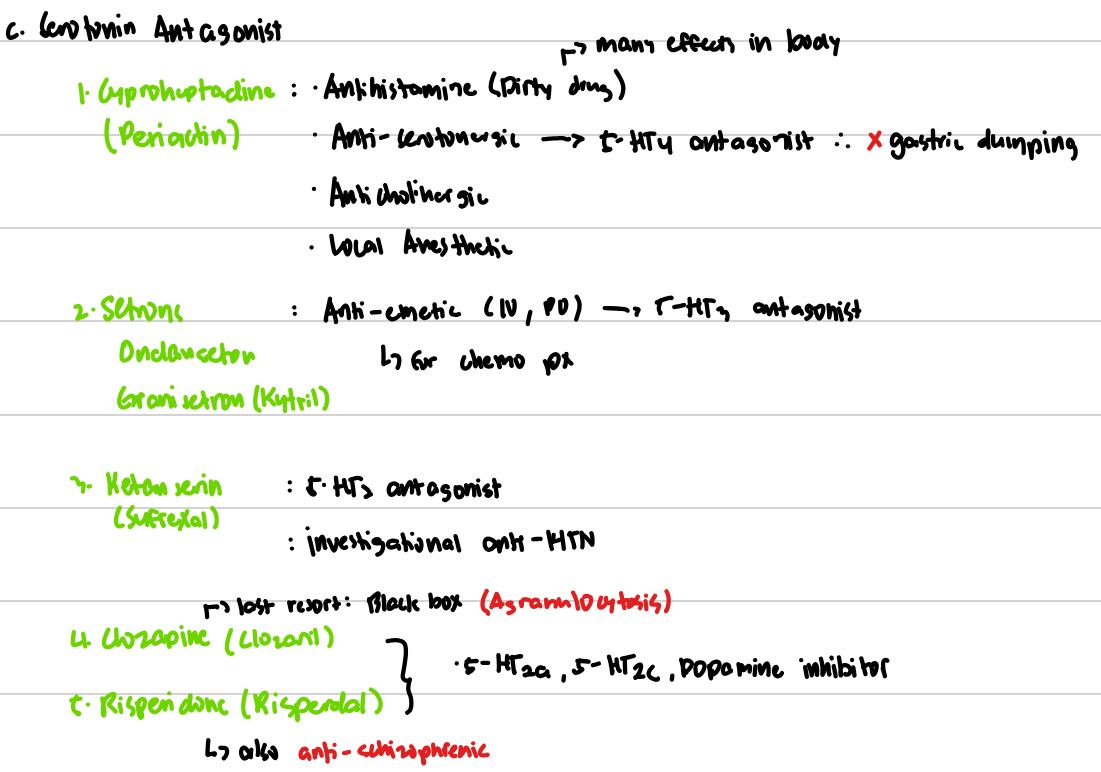 c. Serotonin Antagonist
↱ many effects in body
1. Cyproheptadine : · Antihistamine (Dirty drug)
(Periactin) · Anti-serotonergic → 5-HT4 antagonist ∴ x gastric dumping
· Anticholinergic
· Local Anesthetic
2. Setrons : Anti-emetic (IV, PO) → 5-HT3 antagonist
Ondansetron ↳ for chemo px
Granisetron (Kytril)
3. Ketanserin : 5-HT2 antagonist
(Sufrexal)
: investigational anti-HTN
↱ last resort: Black box (Agranulocytosis)
4. Clozapine (Clozaril)
} · 5-HT2a, 5-HT2C, Dopamine inhibitor
5. Risperidone (Risperdal)
↳ also anti-schizophrenic